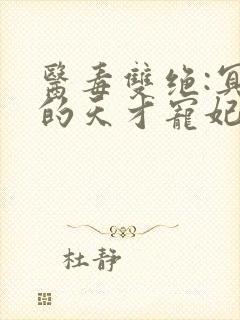 醫毒雙绝:冥
的天才寵妃
杜静